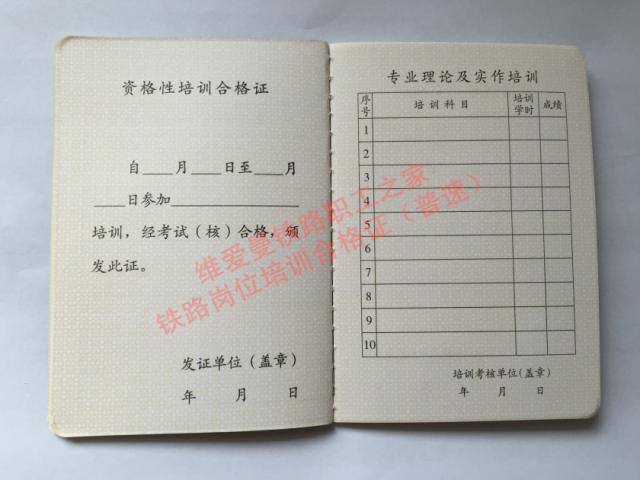 资格性培训合格证
自____月____日至____月
____日参加________________
培训，经考试（核）合格，颁
发此证。
发证单位（盖章）
年 月 日
专业理论及实作培训
序号 培训科目 培训学时 成绩
1
2
3
4
5
6
7
8
9
10
培训考核单位（盖章）
年 月 日
维爱曼铁路职工之家
铁路岗位培训合格证（普速）